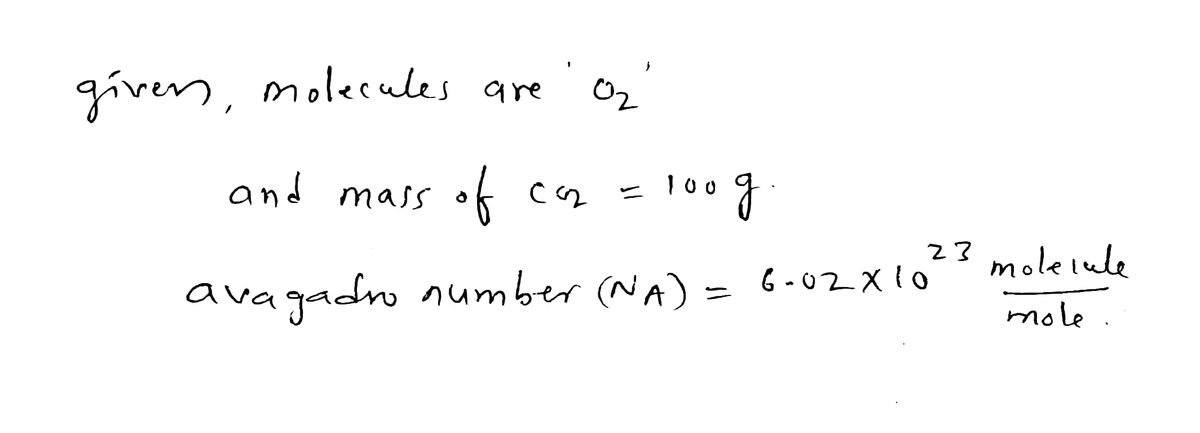 given, molecules are 'O2'
and mass of CO2 = 100 g.
avagadro number (NA) = 6.02 X 10^23 molecule/mole.